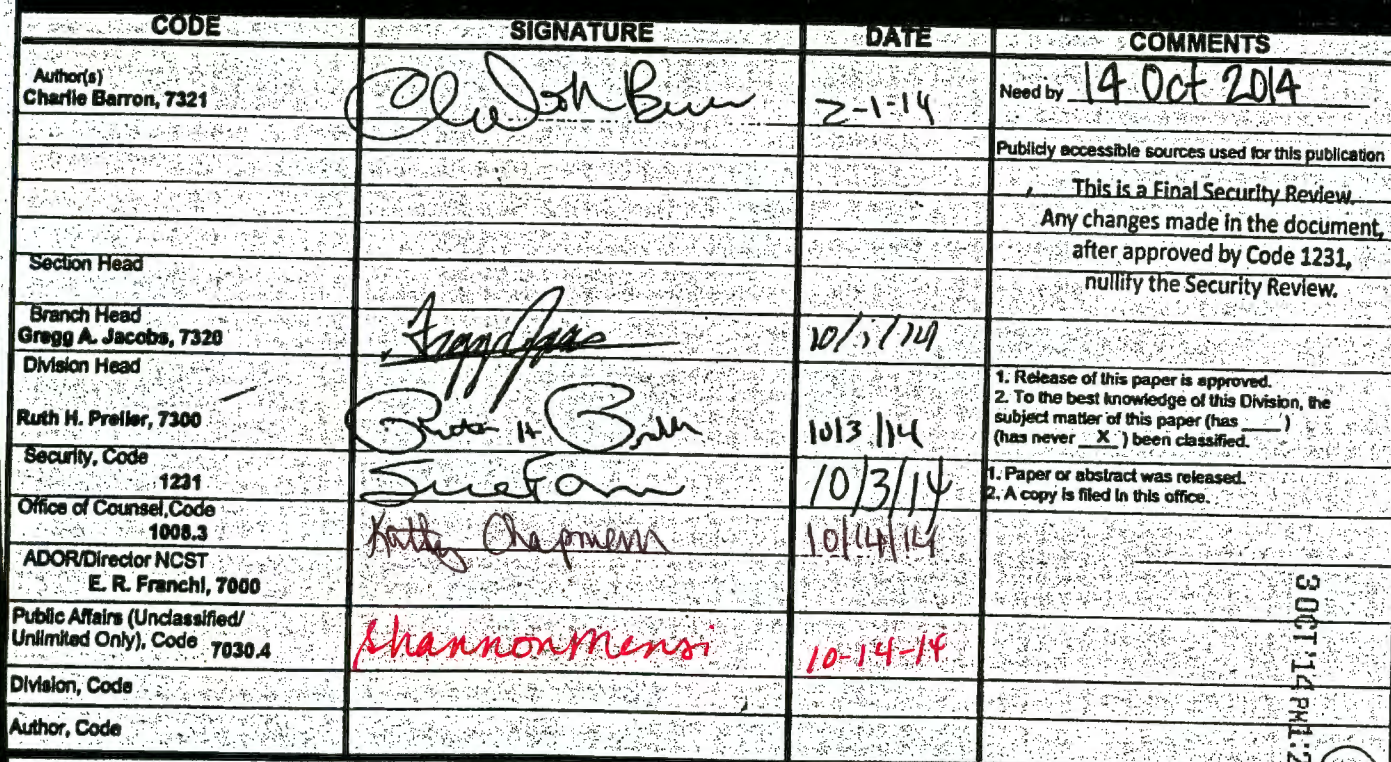 CODE SIGNATURE DATE COMMENTS
Author(s)
Charlie Barron, 7321
2-1-14
Need by 14 Oct 2014
Publicly accessible sources used for this publication
This is a Final Security Review.
Any changes made in the document,
after approved by Code 1231,
nullify the Security Review.
Section Head
Branch Head
Gregg A. Jacobs, 7320
Division Head
Ruth H. Preller, 7300
10/3/14
1. Release of this paper is approved.
2. To the best knowledge of this Division, the
subject matter of this paper (has ____)
(has never X ) been classified.
Security, Code
1231
10/3/14
1. Paper or abstract was released.
2. A copy is filed in this office.
Office of Counsel,Code
1008.3
Kathy Chapman 10/14/14
ADOR/Director NCST
E. R. Franchi, 7000
Public Affairs (Unclassified/
Unlimited Only), Code 7030.4
Shannon Mensi 10-14-14
Division, Code
Author, Code
3 OCT '14 PM1:2